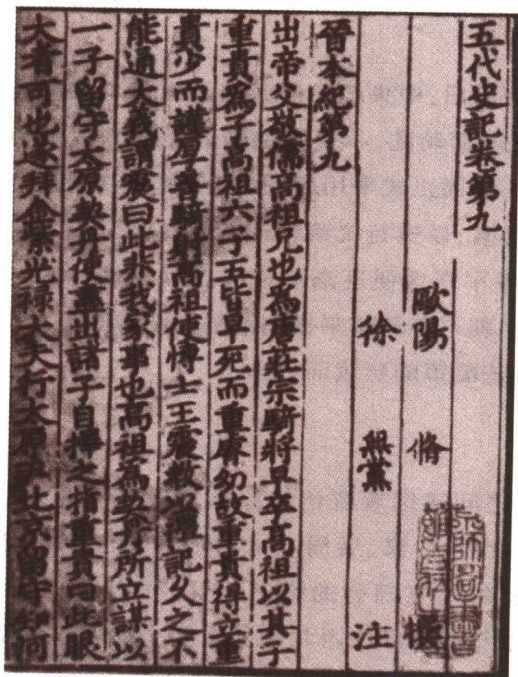 五代史記卷第九
歐陽 脩 撰
徐 無黨 注
晉本紀第九
出帝父敬儒高祖兄也為唐莊宗騎將早卒高祖以其子
重貴為子高祖六子五皆早死而重睿幼故重貴得立重
貴少而謹厚善騎射高祖使博士王震教以禮記久之不
能通大義謂震曰此非我家事也高祖為契丹所立謀以
一子留守太原契丹使盡出諸子自擇之指重貴曰此眼
大者可也遂拜金紫光禄大夫行太原尹北京留守知河